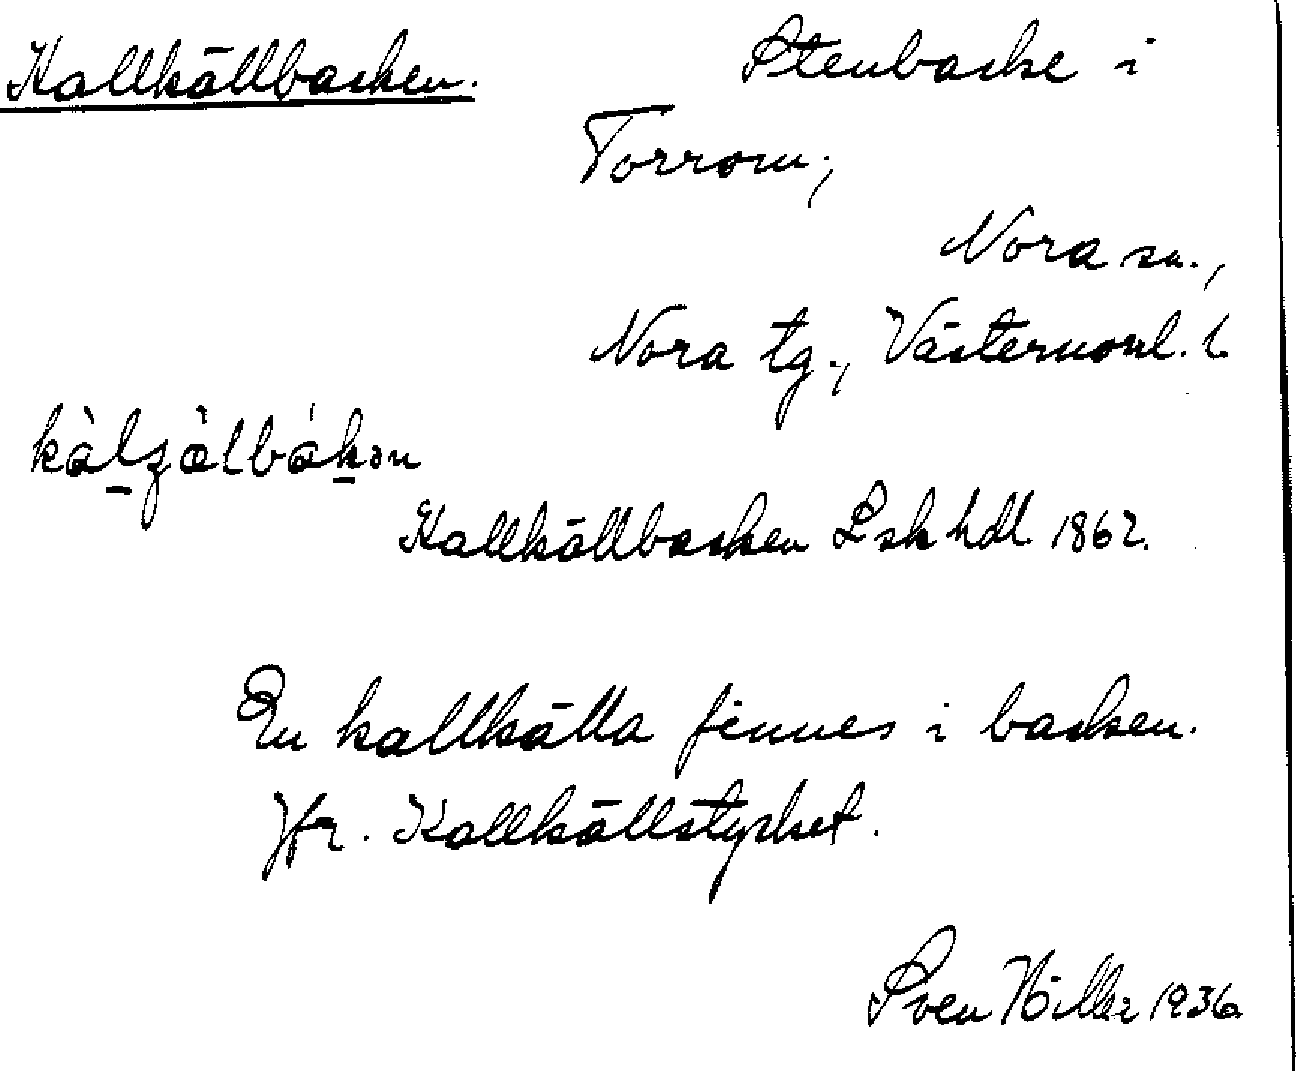 Kallkällbacken. Stenbacke i
Torrom;
Nora sn.,
Nora tg., Västernorrl. l.
Kallkällbacken Lskhdl 1862.
En kallkälla finnes i backen.
Jfr. Kallkällstycket.
Sven Höller 1936